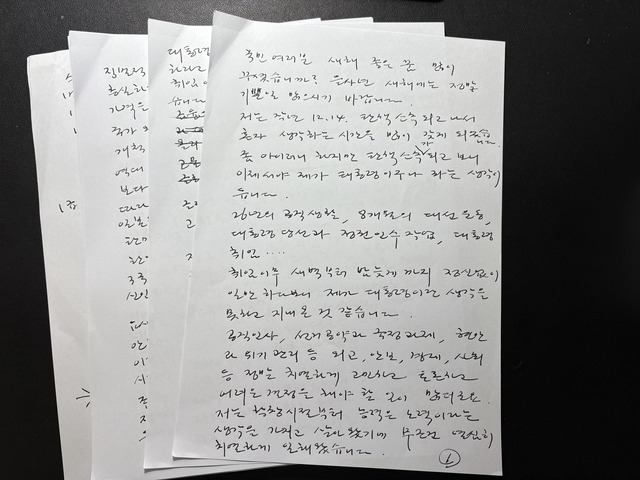 국민 여러분 새해 좋은 꿈 많이
꾸셨습니까? 을사년 새해에는 정말
기쁜일 많으시기 바랍니다.
저는 작년 12.14. 탄핵소추 되고 나서
혼자 생각하는 시간을 많이 갖게 되었습니다.
좀 아이러니 하지만 탄핵소추가 되고 보니
이제서야 제가 대통령이구나 하는 생각이
듭니다.
26년의 공직생활, 8개월의 대선 운동,
대통령 당선과 정권 인수 작업, 대통령
취임....
취임이후 새벽부터 밤늦게 까지 정신없이
일만 하다보니 제가 대통령이란 생각을
못하고 지내온 것 같습니다.
공직인사, 선거공약과 국정과제, 현안
과 위기관리 등 외교, 안보, 경제, 사회
등 정말 치열하게 고민하고 토론하고
어려운 결정을 해야 할 일이 많더군요.
저는 학창시절부터 능력은 노력이라는
생각을 가지고 살아왔기에 무조건 열심히
치열하게 일해 왔습니다.
1
대통령
취임
습니다
국가
개혁
보다